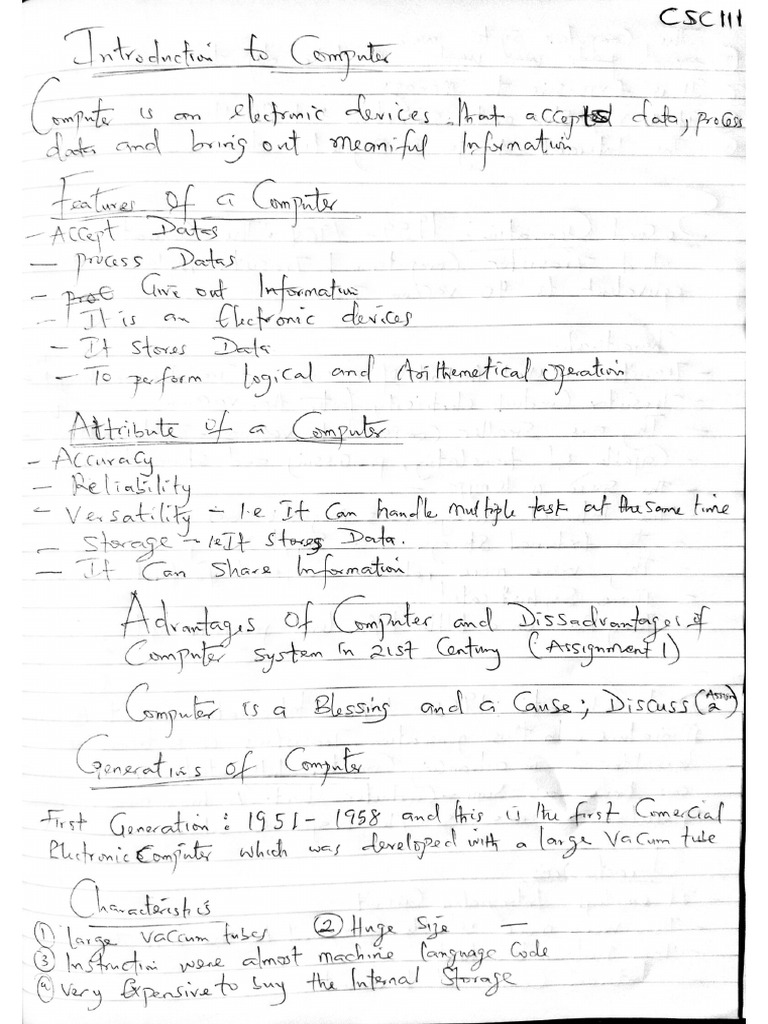 CSC111
Introduction to Computer
Computer is an electronic devices that accepts data, process
data and bring out meaniful Information
Features of a Computer
- Accept Datas
- process Datas
- Give out Information
- It is an Electronic devices
- It stores Data
- To perform logical and Arithemetical operation
Attribute of a Computer
- Accuracy
- Reliability
- Versatility - i.e It Can handle multiple task at the same time
- Storage - ie It stores Data.
- It Can Share Information
Advantages of Computer and Dissadvantages of
Computer System in 21st Century (Assignment 1)
Computer is a Blessing and a Cause; Discuss (Assign 2)
Generations of Computer
First Generation: 1951 - 1958 and this is the first Comercial
Electronic Computer which was developed with a large Vacum tube
Characteristics
① large vaccum tubes ② Huge Size —
③ Instruction were almost machine language Code
④ Very Expensive to buy the Internal Storage